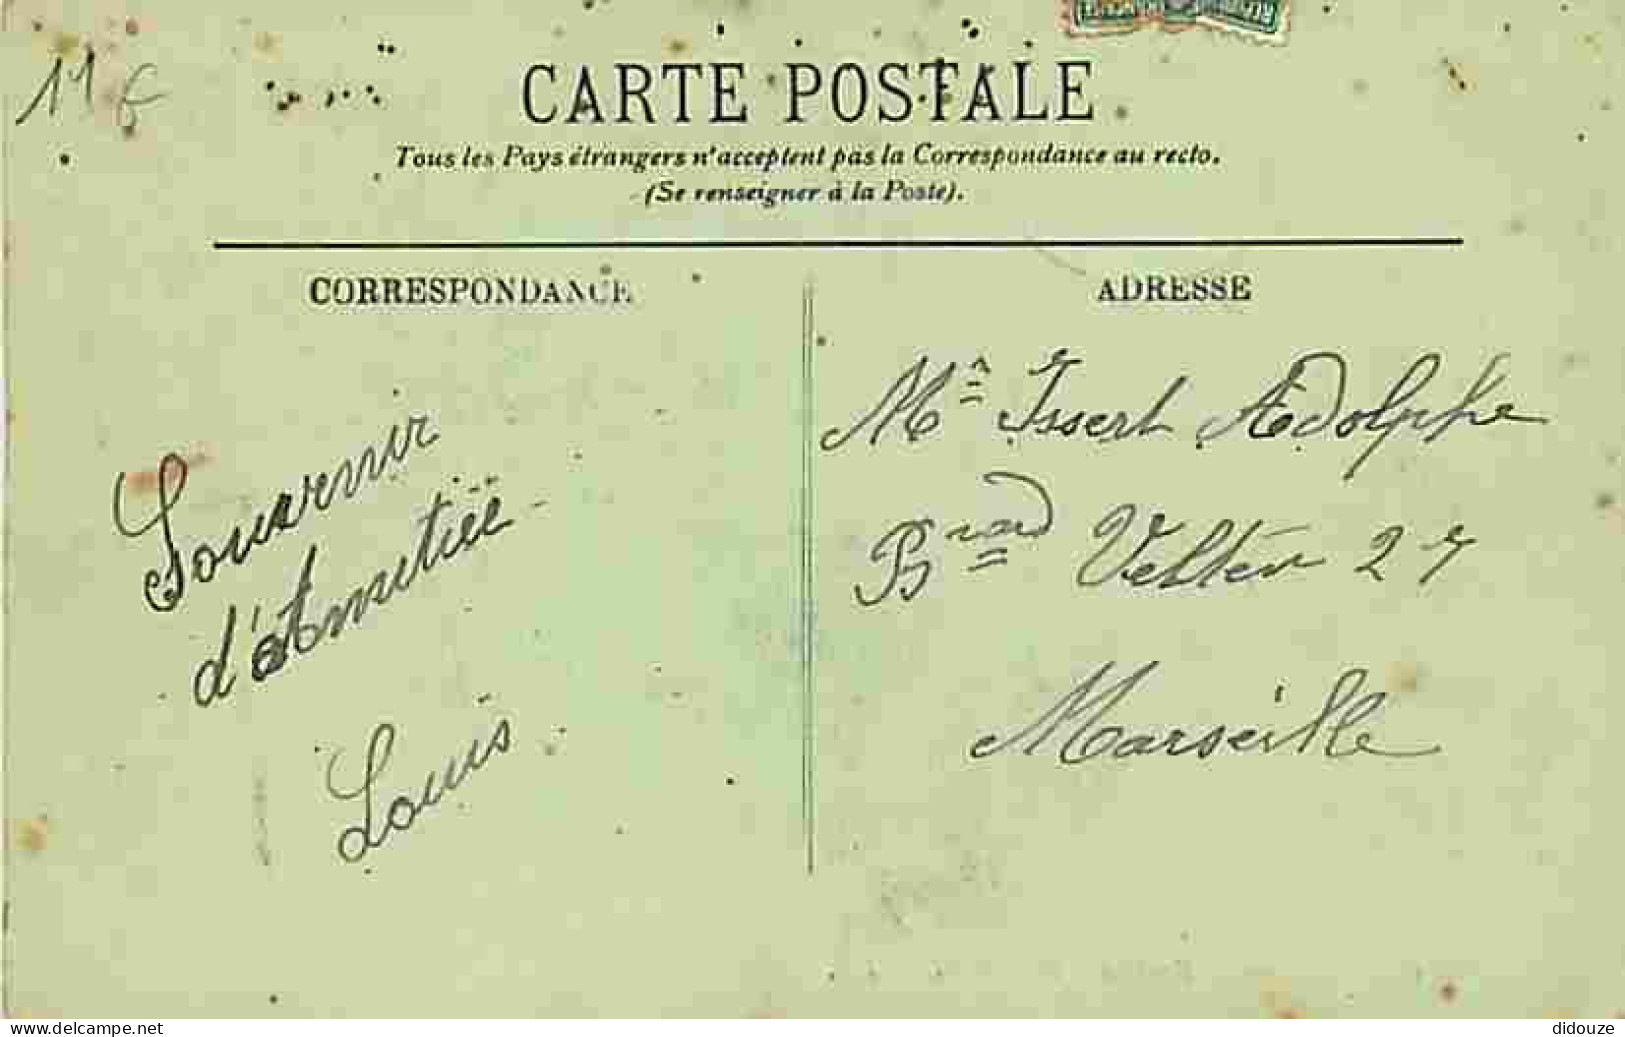 11 €
CARTE POSTALE
Tous les Pays étrangers n'acceptent pas la Correspondance au recto.
(Se renseigner à la Poste).
CORRESPONDANCE
Souvenir
d'Amitiée
Louis
ADRESSE
Mr Issert Adolphe
Bvard Velten 27
Marseille
www.delcampe.net
didouze